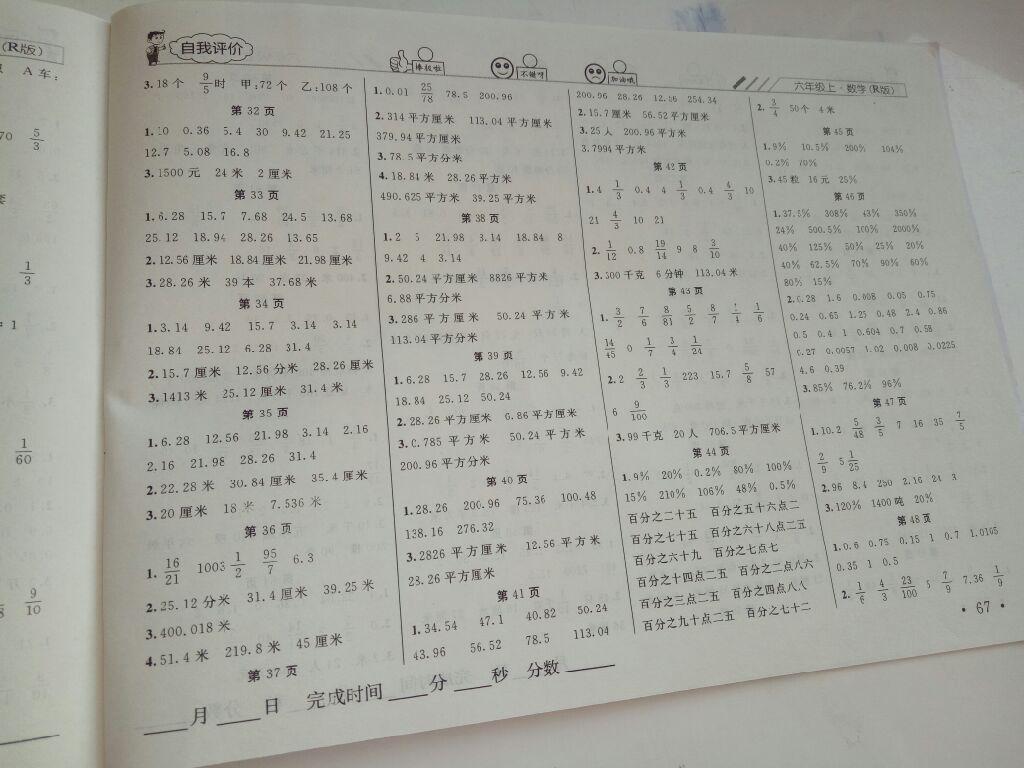 (R版)
A车:
70 5/3
1/3
1
1/60
9/10
自我评价
棒极啦
不错呀
加油哦
六年级上·数学(R版)
3.18个 9/5时 甲:72个 乙:108个
第32页
1.10 0.36 5.4 30 9.42 21.25
12.7 5.08 16.8
3.1500元 24米 2厘米
第33页
1.6.28 15.7 7.68 24.5 13.68
25.12 18.94 28.26 13.65
2.12.56厘米 18.84厘米 21.98厘米
3.28.26米 39本 37.68米
第34页
1.3.14 9.42 15.7 3.14 3.14
18.84 25.12 6.28 31.4
2.15.7厘米 12.56分米 28.26厘米
3.1413米 25.12厘米 31.4米
第35页
1.6.28 12.56 21.98 3.14 2.16
2.16 21.98 28.26 31.4
2.22.28米 30.84厘米 35.4厘米
3.20厘米 18米 7.536米
第36页
1. 16/21 1003 1/2 95/7 6.3
2.25.12分米 31.4厘米 39.25米
3.400.018米
4.51.4米 219.8米 45厘米
第37页
1.0.01 25/78 78.5 200.96
2.314平方厘米 113.04平方厘米
379.94平方厘米
3.78.5平方分米
4.18.84米 28.26平方米
490.625平方米 39.25平方米
第38页
1.2 5 21.98 3.14 18.84 8
9.42 4 3.14
2.50.24平方厘米 8826平方米
6.88平方分米
3.286平方厘米 50.24平方米
113.04平方分米
第39页
1.6.28 15.7 28.26 12.56 9.42
18.84 25.12 50.24
2.28.26平方厘米 6.86平方厘米
3.0.785平方米 50.24平方米
200.96平方分米
第40页
1.28.26 200.96 75.36 100.48
138.16 276.32
3.2826平方厘米 12.56平方米
28.26平方厘米
第41页
1.34.54 47.1 40.82 50.24
43.96 56.52 78.5 113.04
200.96 28.26 12.56 254.34
2.15.7厘米 56.52平方厘米
3.25人 200.96平方米
3.7994平方米
第42页
1.4 1/3 0.4 4 1/3 0.4 4/3 10
21 4/3 10 21
2. 1/12 0.8 19/14 9 8 3/10
3.300千克 6分钟 113.04米
第43页
1. 3/2 7/6 8/81 5/2 8/7 1/6
14/45 0 1/7 3/4 1/24
2.2 2/3 1/3 223 15.7 5/8 57
6 9/100
3.99千克 20人 706.5平方厘米
第44页
1.9% 20% 0.2% 80% 100%
15% 210% 106% 48% 0.5%
百分之二十五 百分之五十六点二
百分之七十五 百分之六十八点二五
百分之六十九 百分之七点七
百分之十四点二五 百分之二点八六
百分之三点二五 百分之四点八八
百分之九十点二五 百分之七十二
2. 3/4 50个 4米
第45页
1.9% 10.5% 200% 104%
0.2% 70%
3.45粒 16元 25%
第46页
1.37.5% 308% 43% 350%
24% 500.5% 100% 2000%
40% 125% 50% 25% 20%
40% 62.5% 70% 90% 60%
80% 15%
2.0.28 1.6 0.008 0.05 0.75
0.24 0.65 1.25 0.48 2.4 0.86
0.5 0.4 1 0.604 0.7 0.58
0.27 0.0057 1.02 0.008 0.0225
4.6 0.39
3.85% 76.2% 96%
第47页
1.10.2 5/48 3/5 7 16 35 7/5
2/9 5 1/25
2.96 8.4 250 2.16 24 3
3.120% 1400吨 20%
第48页
1.0.6 0.75 0.15 1 0.7 1.0105
0.35 1 0.5
2. 1/6 4/3 23/100 5 7/9 7.36 1/9
·67·
____月____日 完成时间____分____秒 分数____